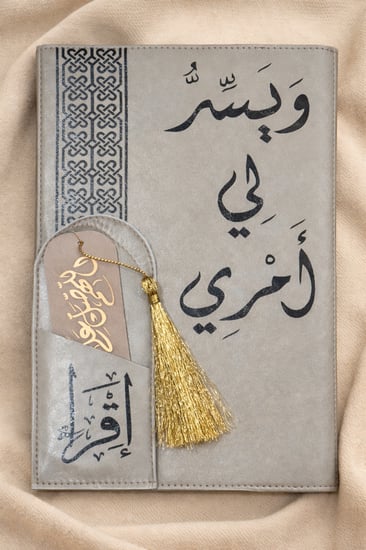 وَيَسِّرُّ
لِي
أَمْرِي
إقرأ